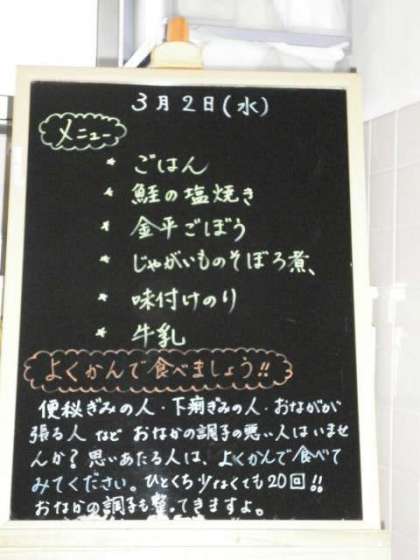 3月2日(水)
メニュー
* ごはん
* 鮭の塩焼き
* 金平ごぼう
* じゃがいものそぼろ煮、
* 味付けのり
* 牛乳
よくかんで食べましょう!!
便秘ぎみの人・下痢ぎみの人・おなかが
張る人 など おなかの調子の悪い人はいませ
んか? 思いあたる人は、よくかんで食べて
みてください。ひとくち少なくても20回!!
おなかの調子も整ってきますよ。